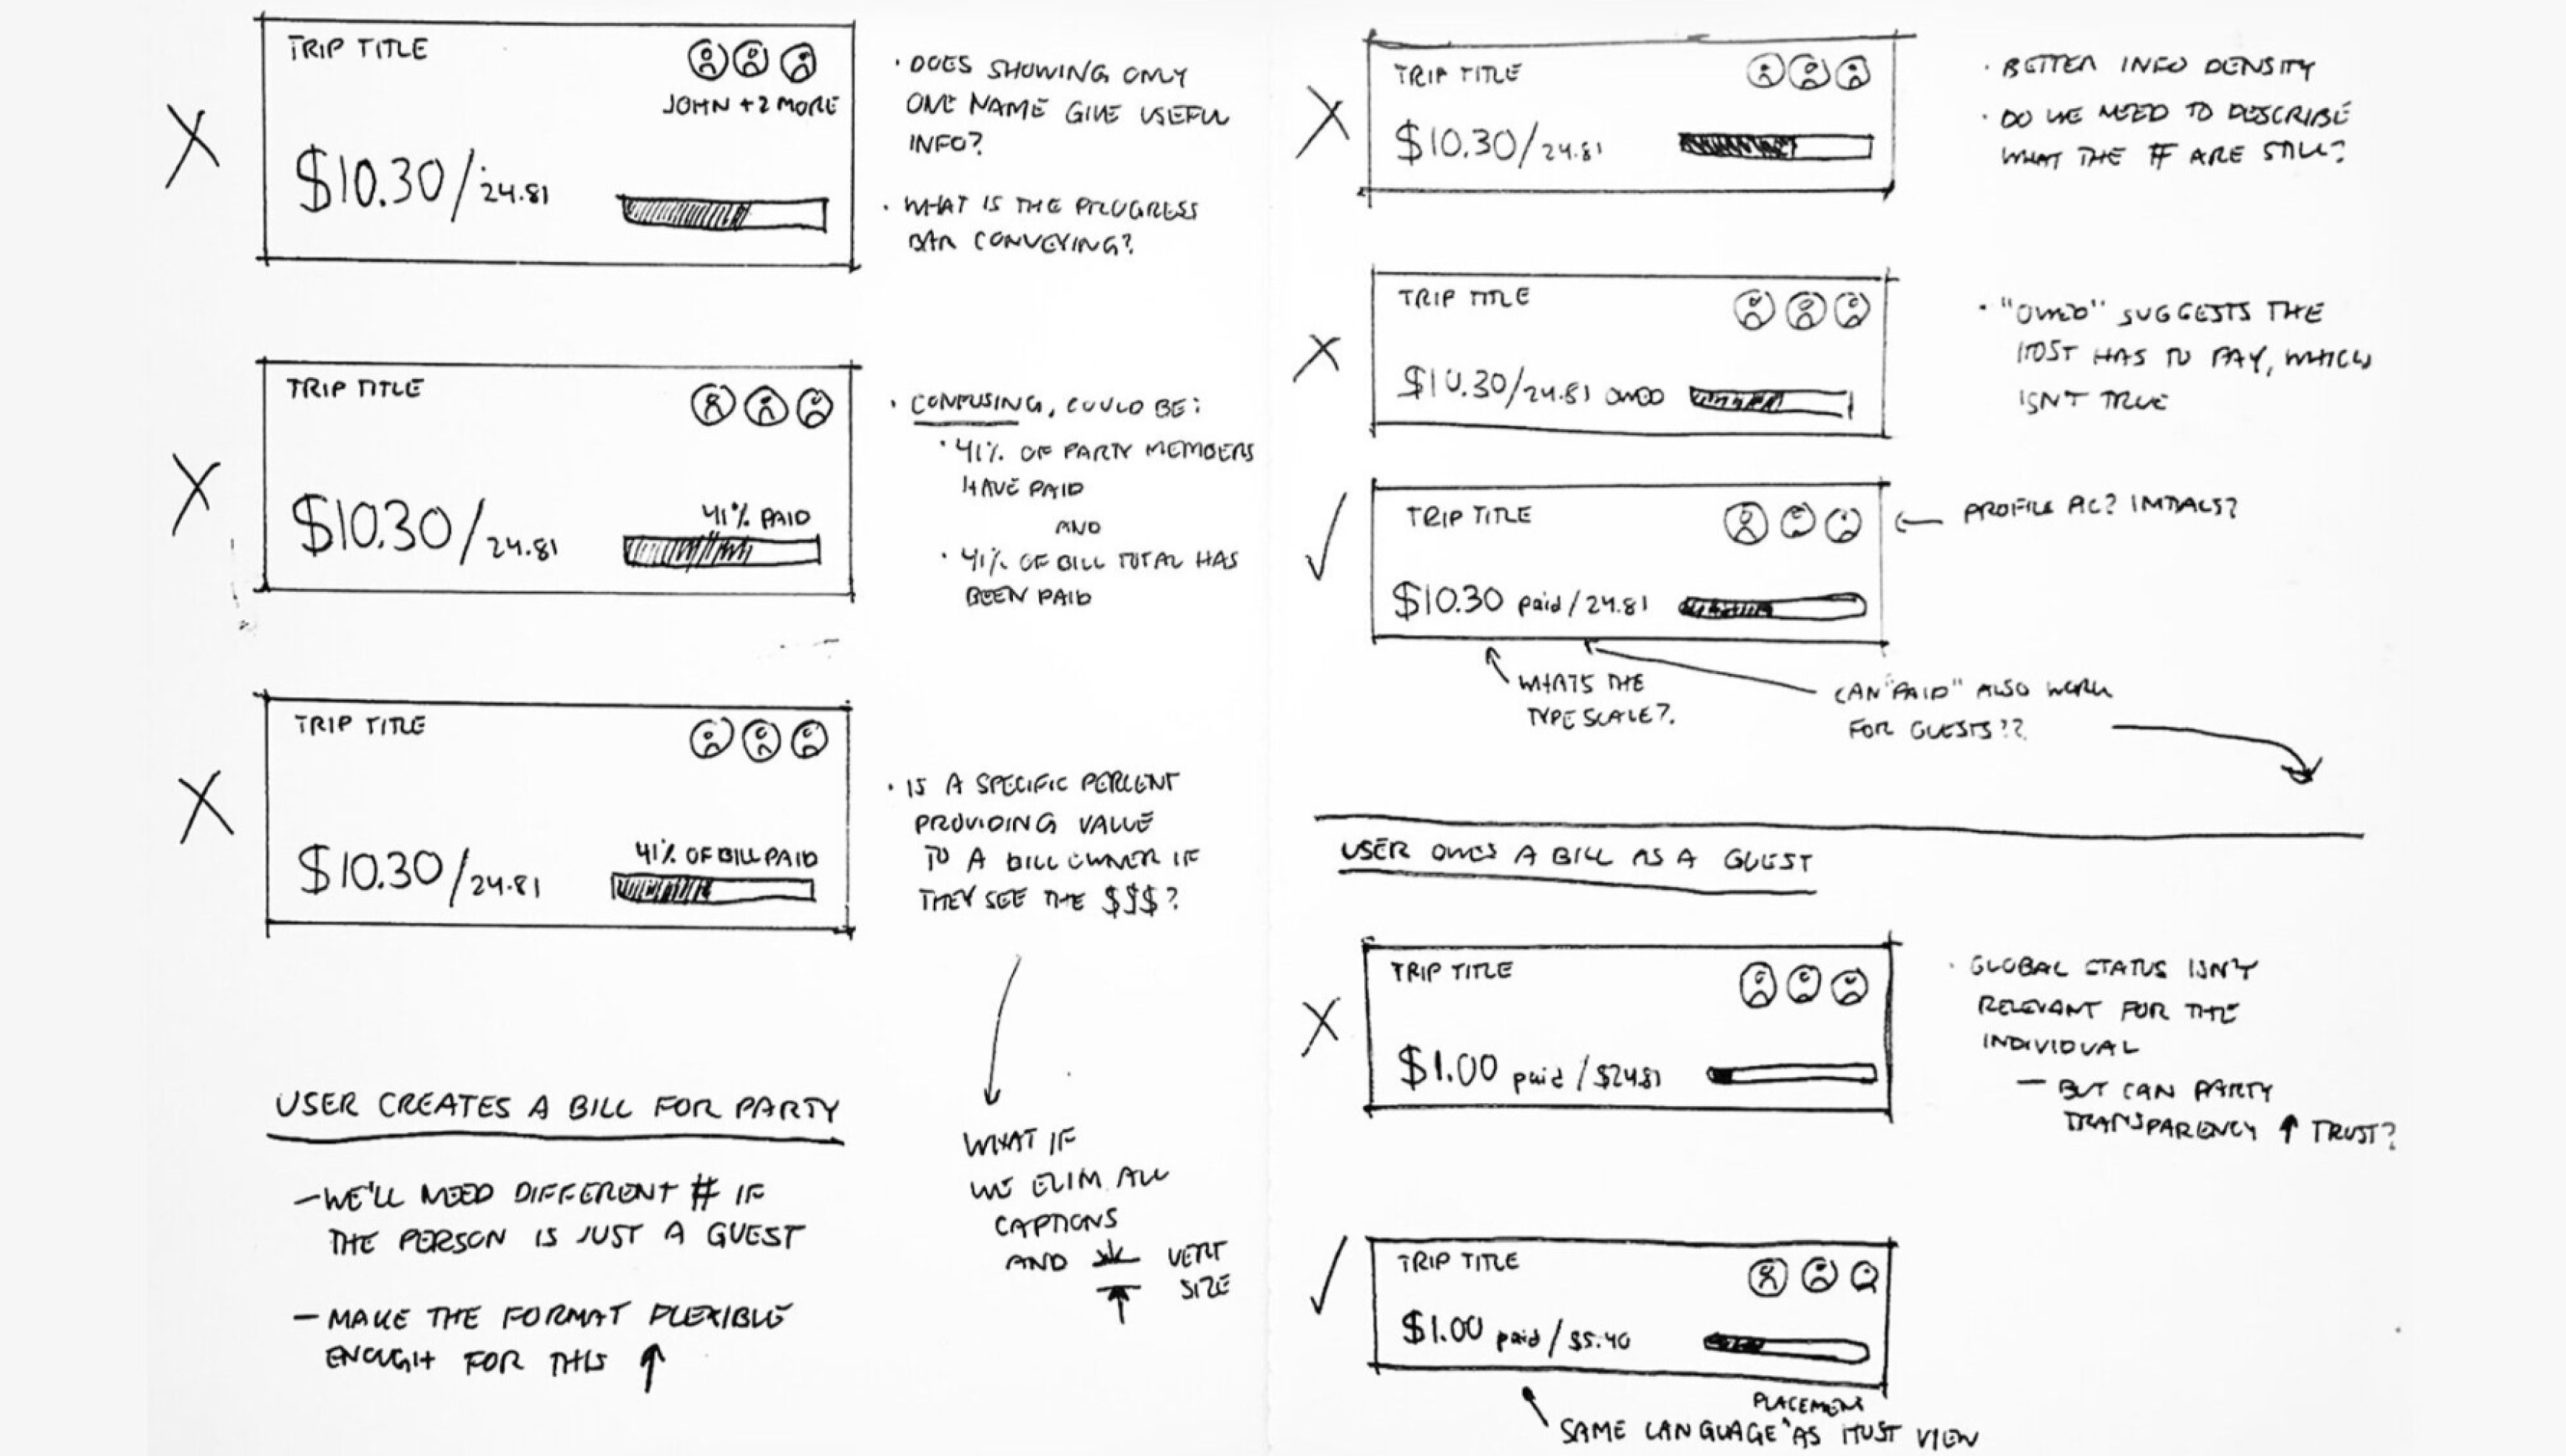 TRIP TITLE
JOHN +2 MORE
$10.30/24.81
• DOES SHOWING ONLY
ONE NAME GIVE USEFUL
INFO?
• WHAT IS THE PROGRESS
BAR CONVEYING?
TRIP TITLE
41% PAID
$10.30/24.81
• CONFUSING, COULD BE:
• 41% OF PARTY MEMBERS
HAVE PAID
AND
• 41% OF BILL TOTAL HAS
BEEN PAID
TRIP TITLE
41% OF BILL PAID
$10.30/24.81
• IS A SPECIFIC PERCENT
PROVIDING VALUE
TO A BILL OWNER IF
THEY SEE THE $$$?
WHAT IF
WE ELIM ALL
CAPTIONS
AND VERT
SIZE
USER CREATES A BILL FOR PARTY
- WE'LL NEED DIFFERENT # IF
THE PERSON IS JUST A GUEST
- MAKE THE FORMAT FLEXIBLE
ENOUGH FOR THIS ↑
TRIP TITLE
$10.30/24.81
• BETTER INFO DENSITY
• DO WE NEED TO DESCRIBE
WHAT THE # ARE STILL?
TRIP TITLE
$10.30/24.81 OWED
• "OWED" SUGGESTS THE
HOST HAS TO PAY, WHICH
ISN'T TRUE
TRIP TITLE
$10.30 paid/24.81
← PROFILE PIC? INITIALS?
WHATS THE
TYPE SCALE?
CAN "PAID" ALSO WORK
FOR GUESTS??
USER OWES A BILL AS A GUEST
TRIP TITLE
$1.00 paid/$24.81
• GLOBAL STATUS ISN'T
RELEVANT FOR THE
INDIVIDUAL
- BUT CAN PARTY
TRANSPARENCY ↑ TRUST?
TRIP TITLE
$1.00 paid/$5.40
PLACEMENT
SAME LANGUAGE^AS HOST VIEW